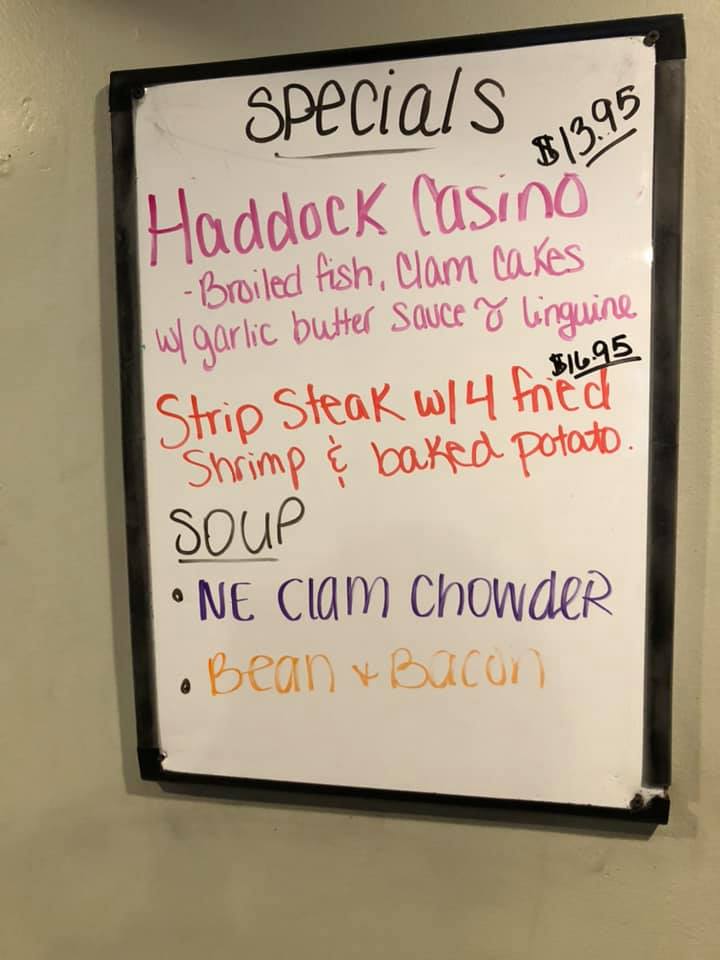 Specials
$13.95
Haddock Casino
- Broiled fish, Clam Cakes
w/ garlic butter Sauce & linguine
$16.95
Strip Steak w/ 4 fried
Shrimp & baked potato.
SOUP
• NE Clam Chowder
• Bean & Bacon